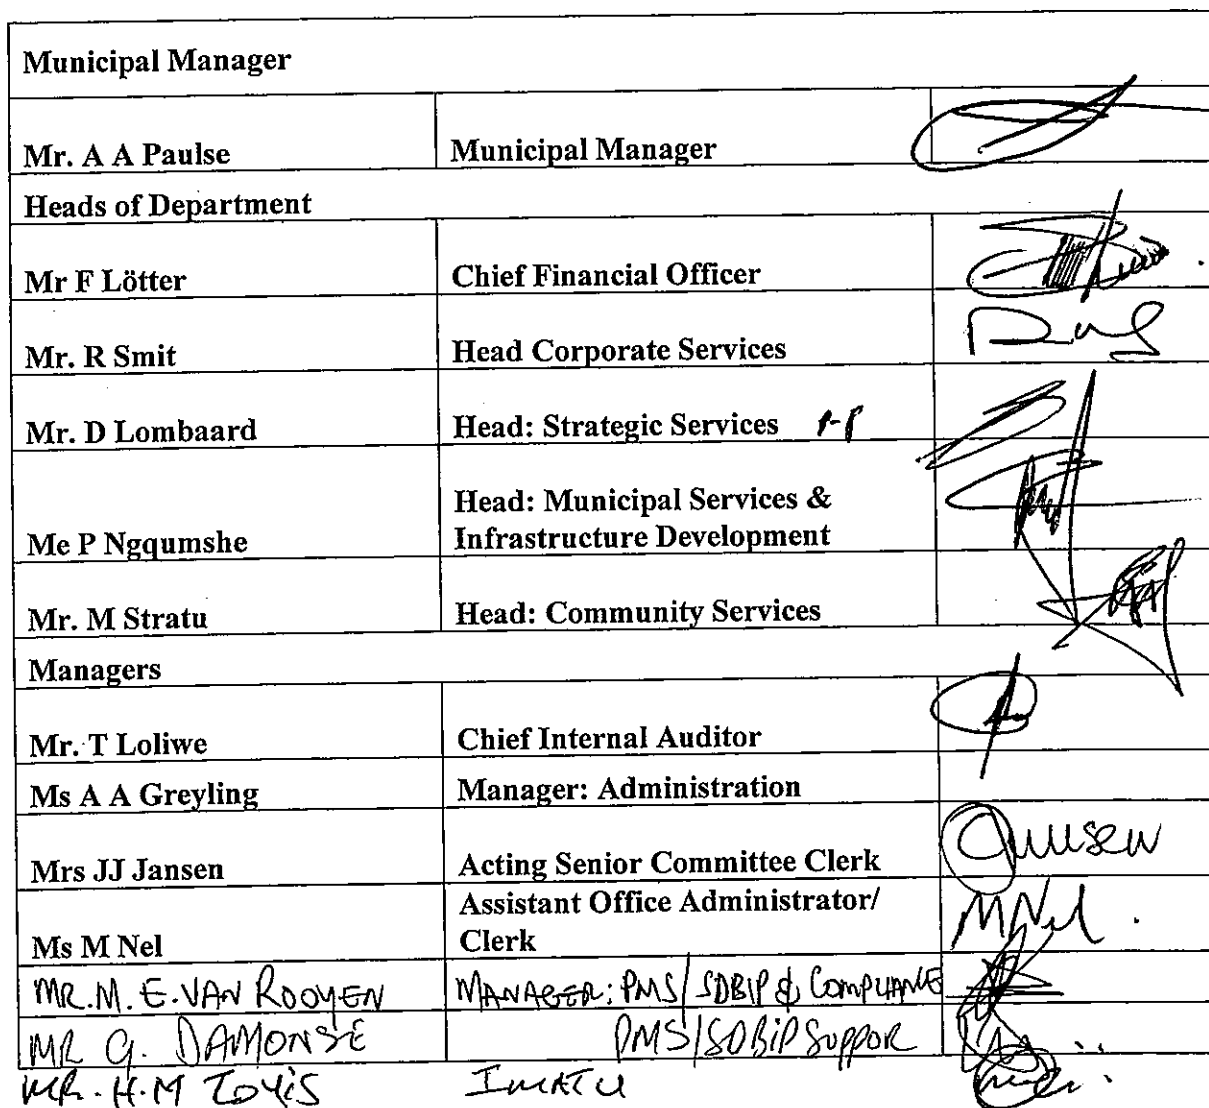 Municipal Manager
Mr. A A Paulse Municipal Manager
Heads of Department
Mr F Lötter Chief Financial Officer
Mr. R Smit Head Corporate Services
Mr. D Lombaard Head: Strategic Services
Me P Ngqumshe Head: Municipal Services &
Infrastructure Development
Mr. M Stratu Head: Community Services
Managers
Mr. T Loliwe Chief Internal Auditor
Ms A A Greyling Manager: Administration
Mrs JJ Jansen Acting Senior Committee Clerk
Ms M Nel Assistant Office Administrator/
Clerk MNel.
MR. M. E. VAN ROOYEN MANAGER: PMS/SDBIP & COMPLIANCE
MR G. DAMONSE PMS/SDBIP SUPPOR
MR. H.M IMATU